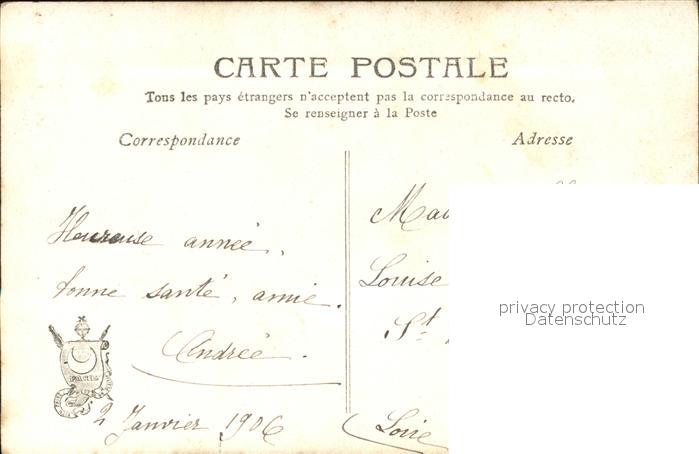 CARTE POSTALE
Tous les pays étrangers n'acceptent pas la correspondance au recto.
Se renseigner à la Poste
Correspondance
Adresse
Heureuse année,
bonne santé, amie.
Andrée.
PARIS
2 Janvier 1906
Louise
St
Loire
privacy protection
Datenschutz